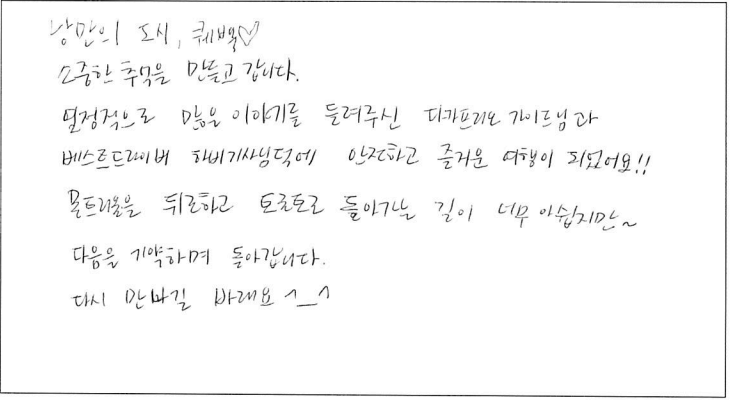 낭만의 도시, 퀘벡♡
소중한 추억을 만들고 갑니다.
열정적으로 많은 이야기를 들려주신 디카프리오 가이드님과
베스트드라이버 하비기사님덕에 안전하고 즐거운 여행이 되었어요!!
몬트리올을 뒤로하고 토론토로 돌아가는 길이 너무 아쉽지만~
다음을 기약하며 돌아갑니다.
다시 만나길 바래요 ^_^